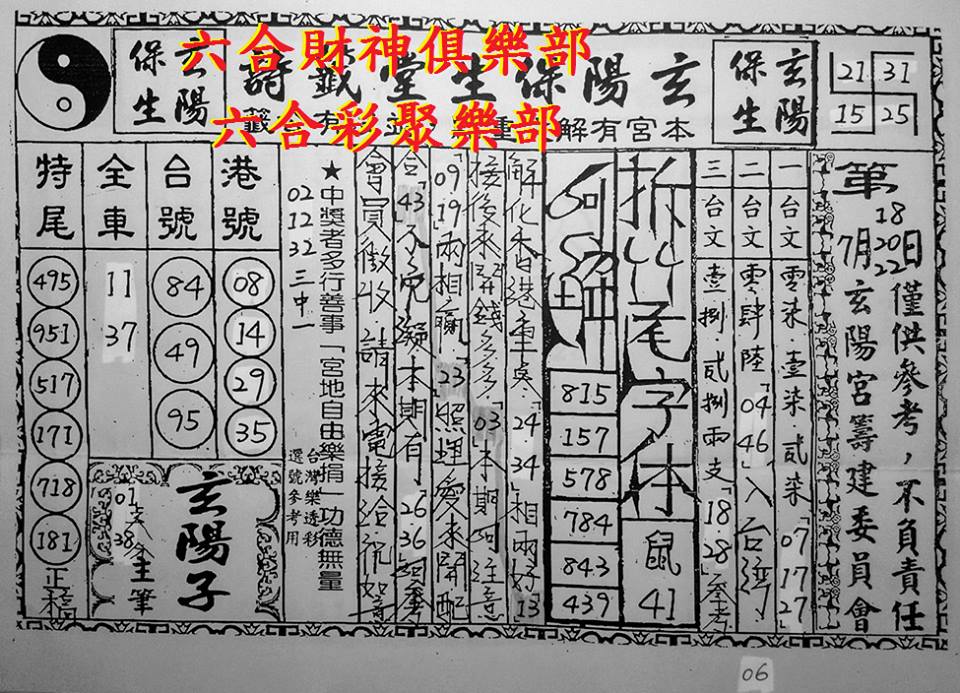 六合財神俱樂部
六合彩聚樂部
玄陽保生堂籤詩
玄陽
保生
玄陽
保生
本宮有解
21 31
15 25
第 18 20 22 日僅供參考，不負責任
7月玄陽宮籌建委員會
一台文 零柒·壹柒·貳柒「07 17 27
二台文 零肆陸「04 46」入台灣
三台文 壹捌·貳捌兩支 18 28 參考
拆 尾字体
鼠
41
815
157
578
784
843
439
解化香港重 「24 34 相兩好 13
接後來開錢多多「03 本期 注意
「09 19 兩相贏「23 照理愛來開配
「43 不 本期有「26 36
會員徵收請來電接洽
★中獎者多行善事「宮地自由樂捐」功德無量
台灣樂透彩
選號參考用
02 12 32 三中一
港號
08
14
29
35
台號
84
49
95
全車
11
37
特尾
495
951
517
171
718
181
正
玄陽子
01
38
主筆
06